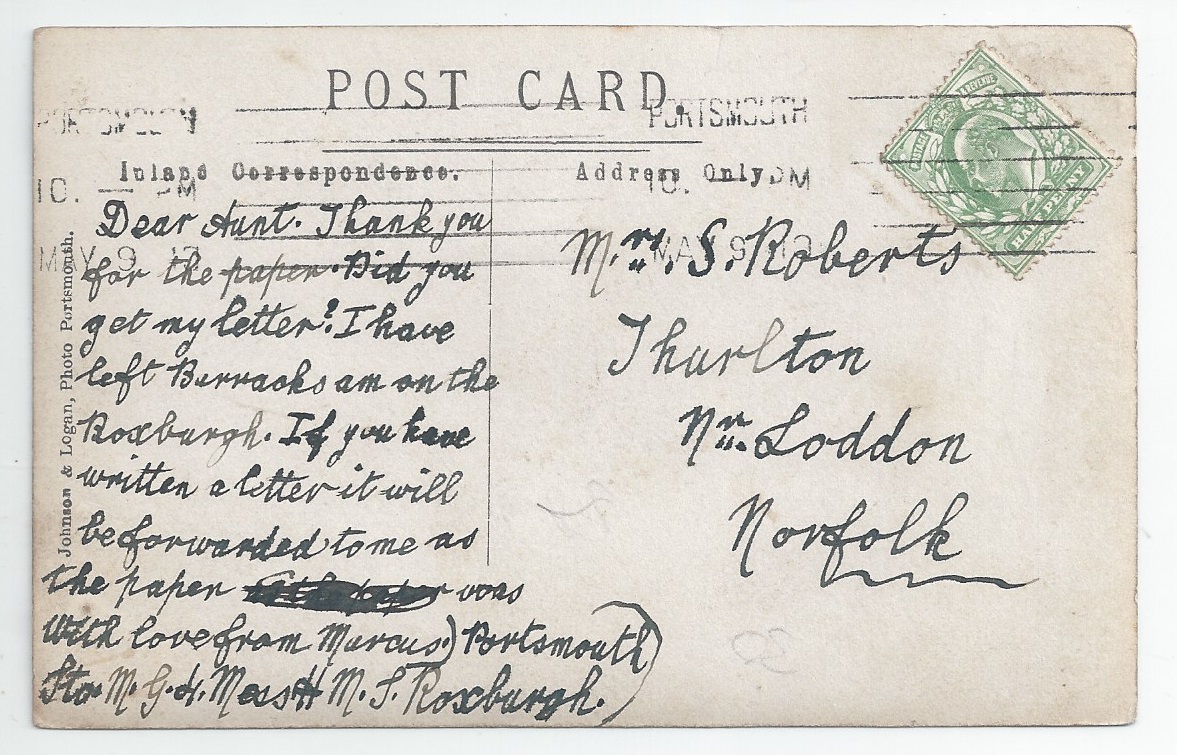 POST CARD.
PORTSMOUTH
PORTSMOUTH
Inland Correspondence.
Address Only.
10. — PM
10. — PM
MAY 9
MAY 9
POSTAGE & REVENUE
HALF PENNY
Dear Aunt. Thank you
for the paper. Did you
get my letter? I have
left Barracks am on the
Roxburgh. If you have
written a letter it will
be forwarded to me as
the paper was
With love from Marcus.) Portsmouth)
Sto. M. G. 4. Mess H M. S. Roxburgh.
Mrs. S. Roberts
Thurlton
Nr. Loddon
Norfolk
Johnson & Logan, Photo Portsmouth.